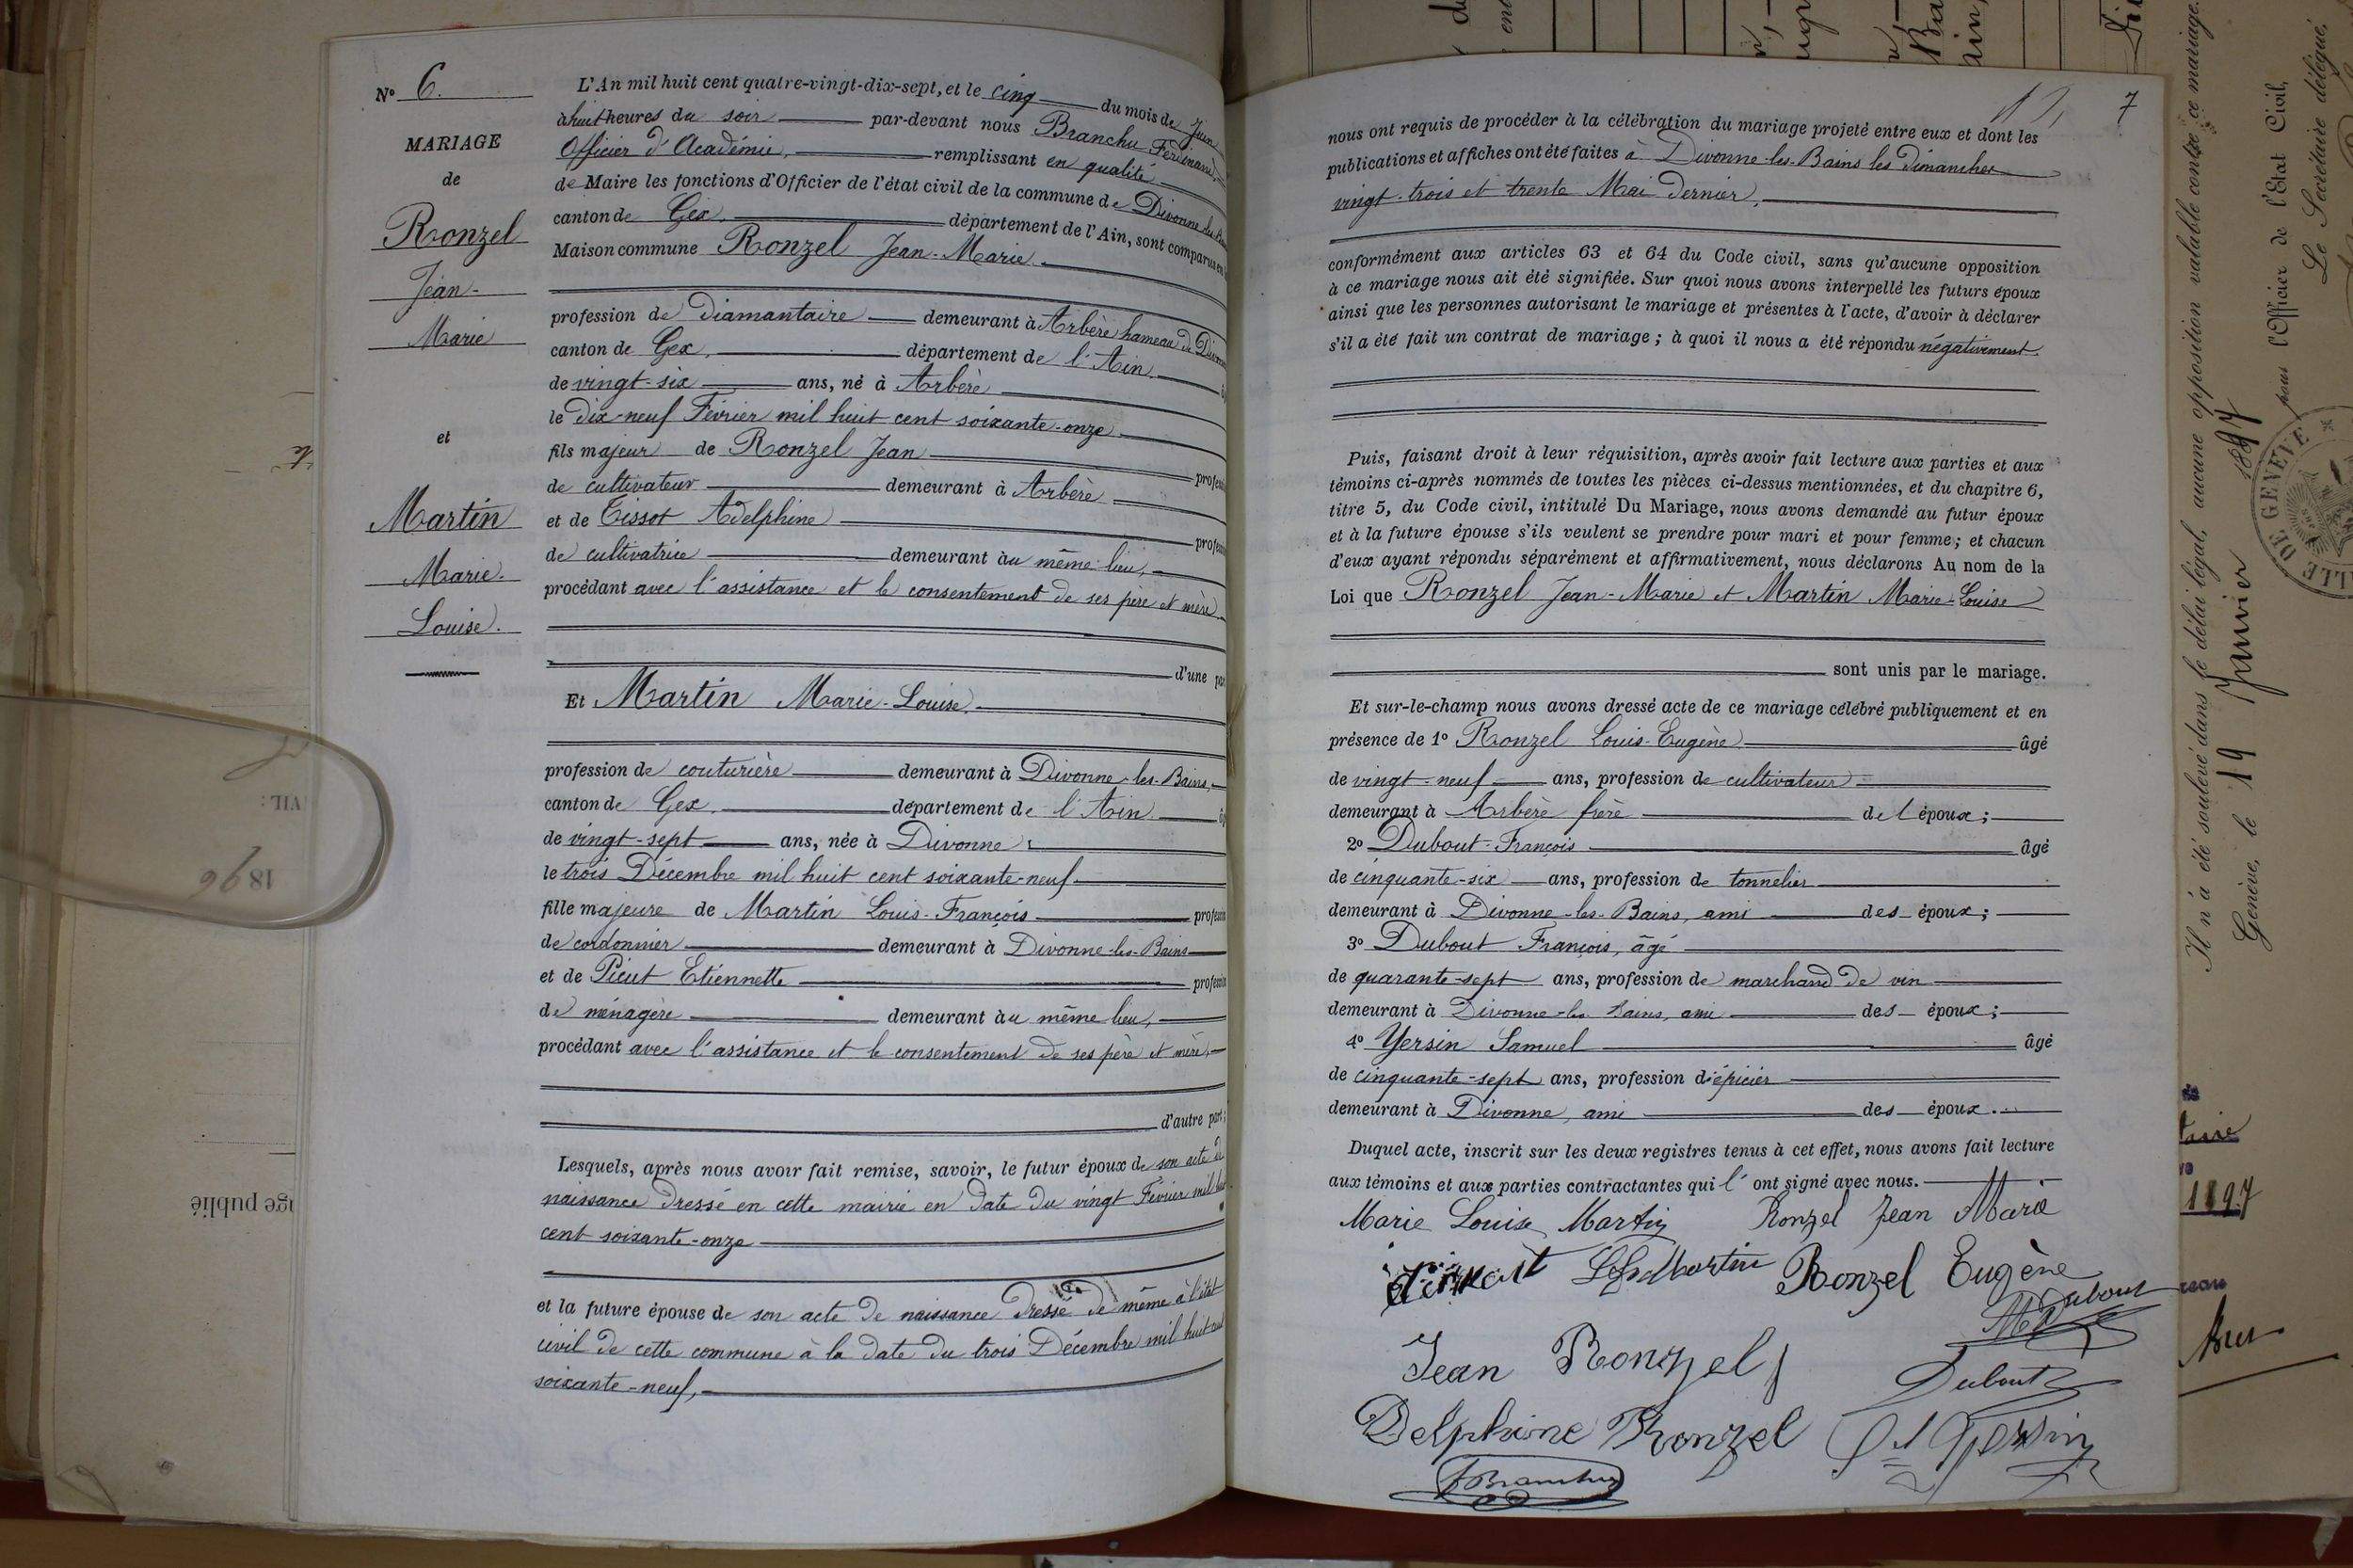 N° 6.
MARIAGE
de
Ronzel
Jean-
Marie
et
Martin
Marie-
Louise.
L'An mil huit cent quatre-vingt-dix-sept, et le cinq du mois de Juin
à huit heures du soir par-devant nous Branchu Ferdinand,
Officier d'Académie, remplissant en qualité
de Maire les fonctions d'Officier de l'état civil de la commune de Divonne-les-B
canton de Gex, département de l'Ain, sont comparus en
Maison commune Ronzel Jean-Marie
profession de Diamantaire demeurant à Arbère hameau de Divonne
canton de Gex, département de l'Ain
de vingt-six ans, né à Arbère
le dix-neuf Février mil huit cent soixante-onze
fils majeur de Ronzel Jean profess
de cultivateur demeurant à Arbère
et de Tissot Adelphine profess
de cultivatrice demeurant au même lieu,
procédant avec l'assistance et le consentement de ses père et mère
d'une par
Et Martin Marie-Louise.
profession de couturière demeurant à Divonne-les-Bains,
canton de Gex, département de l'Ain
de vingt-sept ans, née à Divonne
le trois Décembre mil huit cent soixante-neuf
fille majeure de Martin Louis-François profession
de cordonnier demeurant à Divonne-les-Bains
et de Picut Etiennette profession
de ménagère demeurant au même lieu,
procédant avec l'assistance et le consentement de ses père et mère,
d'autre part;
Lesquels, après nous avoir fait remise, savoir, le futur époux de son acte de
naissance dressé en cette mairie en date du vingt Février mil huit
cent soixante-onze
et la future épouse de son acte de naissance dressé de même à l'état
civil de cette commune à la date du trois Décembre mil huit cent
soixante-neuf,
7
nous ont requis de procéder à la célébration du mariage projeté entre eux et dont les
publications et affiches ont été faites à Divonne-les-Bains les dimanches
vingt-trois et trente Mai dernier,
conformément aux articles 63 et 64 du Code civil, sans qu'aucune opposition
à ce mariage nous ait été signifiée. Sur quoi nous avons interpellé les futurs époux
ainsi que les personnes autorisant le mariage et présentes à l'acte, d'avoir à déclarer
s'il a été fait un contrat de mariage ; à quoi il nous a été répondu négativement.
Puis, faisant droit à leur réquisition, après avoir fait lecture aux parties et aux
témoins ci-après nommés de toutes les pièces ci-dessus mentionnées, et du chapitre 6,
titre 5, du Code civil, intitulé Du Mariage, nous avons demandé au futur époux
et à la future épouse s'ils veulent se prendre pour mari et pour femme ; et chacun
d'eux ayant répondu séparément et affirmativement, nous déclarons Au nom de la
Loi que Ronzel Jean-Marie et Martin Marie-Louise
sont unis par le mariage.
Et sur-le-champ nous avons dressé acte de ce mariage célébré publiquement et en
présence de 1° Ronzel Louis-Eugène âgé
de vingt-neuf ans, profession de cultivateur
demeurant à Arbère frère de l'époux ;
2° Dubout-François âgé
de cinquante-six ans, profession de tonnelier
demeurant à Divonne-les-Bains, ami des époux ;
3° Dubout François, âgé
de quarante-sept ans, profession de marchand de vin
demeurant à Divonne-les-Bains, ami des époux ;
4° Yersin Samuel âgé
de cinquante-sept ans, profession d'épicier
demeurant à Divonne, ami des époux.
Duquel acte, inscrit sur les deux registres tenus à cet effet, nous avons fait lecture
aux témoins et aux parties contractantes qui l'ont signé avec nous.
Marie Louise Martin Ronzel Jean Marie
Martin Ronzel Eugène
Dubout
Jean Ronzel
Dubout
Delphine Ronzel Yersin
FBranchu
VIL :
1896
age publié
Il n'a été soulevé dans le délai légal, aucune opposition valable contre ce mariage.
Genève, le 19 Janvier 1897
pour l'Officier de l'État Civil,
Le Secrétaire délégué,
VILLE DE GENÈVE
1897